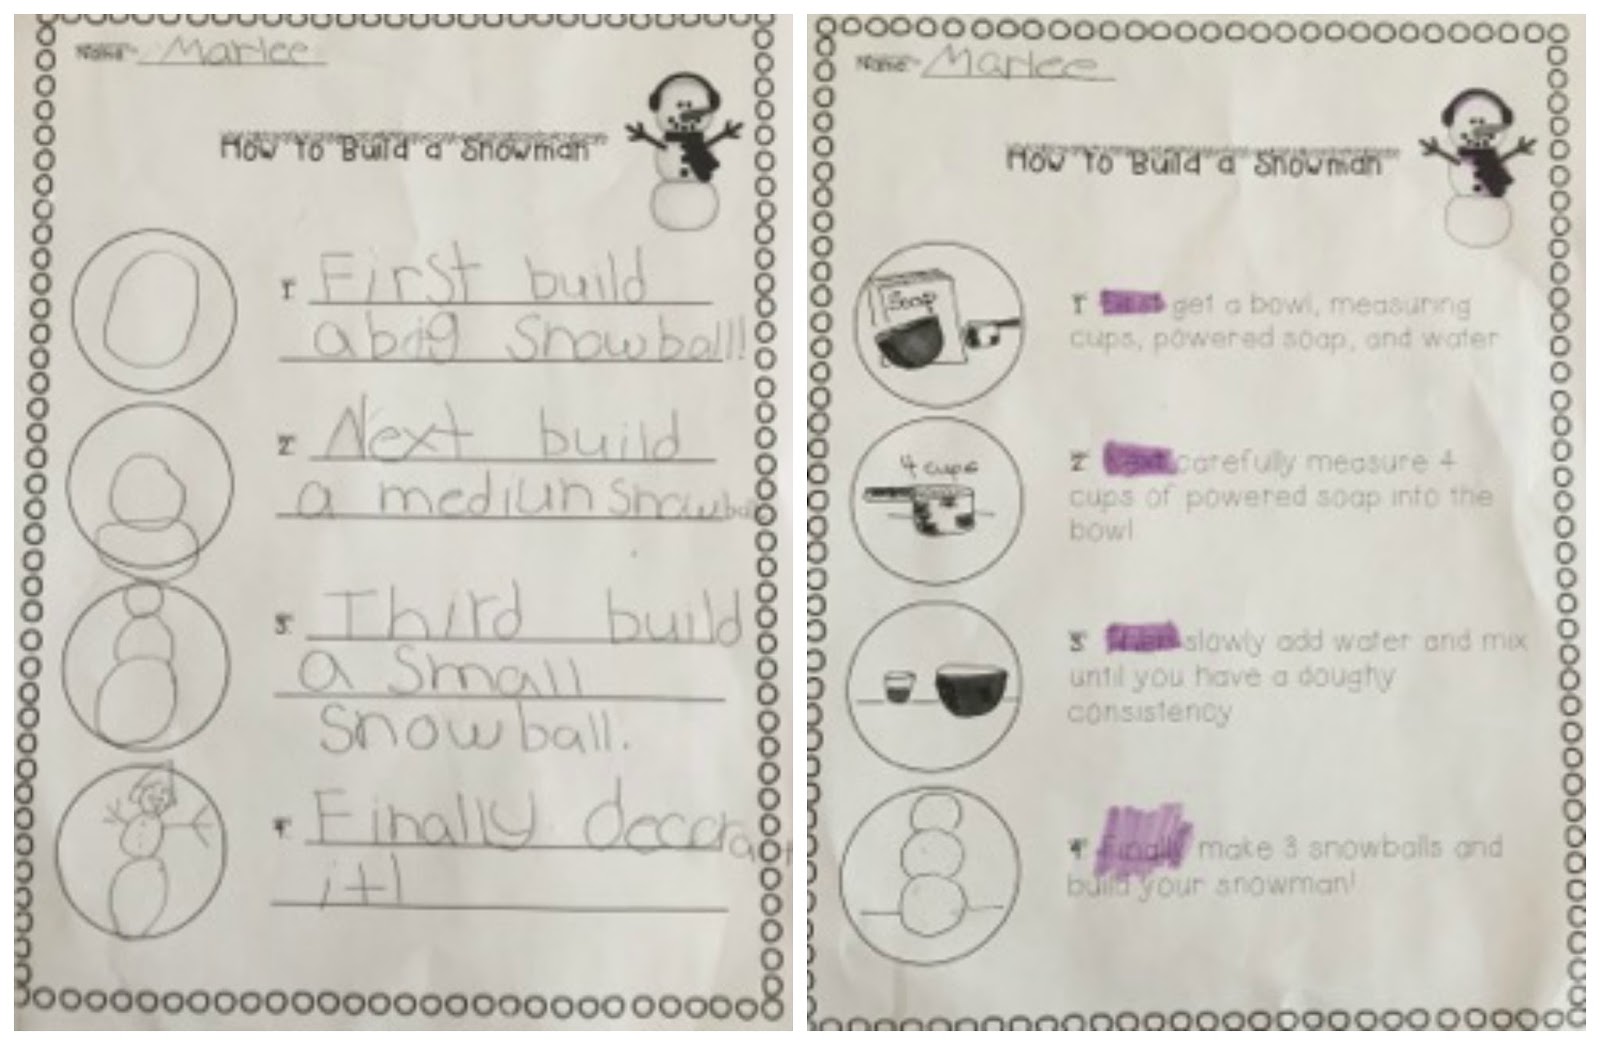 Name: Marlee
How To Build a Snowman
1. First build
a big Snowball!
2. Next build
a mediun Snowball
3. Third build
a Small
Snowball.
4. Finally decorat
it!
Name: Marlee
How To Build a Snowman
Soap
1. First get a bowl, measuring
cups, powered soap, and water
4 cups
2. Next carefully measure 4
cups of powered soap into the
bowl
3. Then slowly add water and mix
until you have a doughy
consistency
4. Finally make 3 snowballs and
build your snowman!